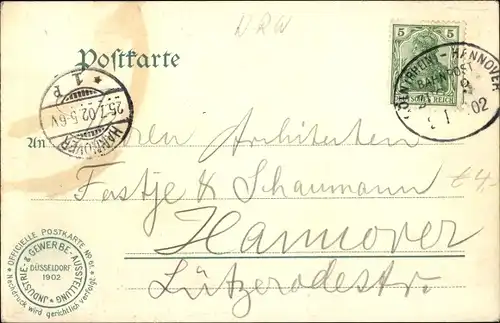 DRW
Postkarte
5 5
DEUTSCHES REICH
HANNOVER
BAHNPOST
02
* 1 P
25.7.02.5-6V
HANNOVER
An Herren Architekten
Fastje & Schaumann
Hannover
Lützerodestr.
€4.
* OFFICIELLE POSTKARTE No 61 *
INDUSTRIE- & GEWERBE-AUSSTELLUNG
DÜSSELDORF
1902
Nachdruck wird gerichtlich verfolgt